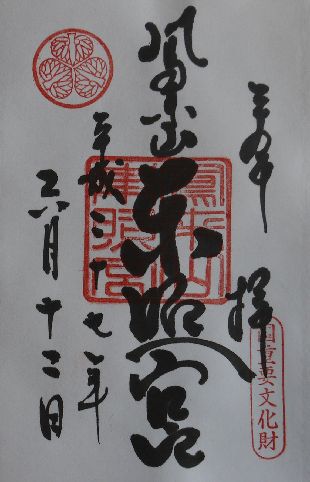 奉拝
国重要文化財
鳳来山東照宮
鳳来山東照宮
平成二十七年
六月十二日